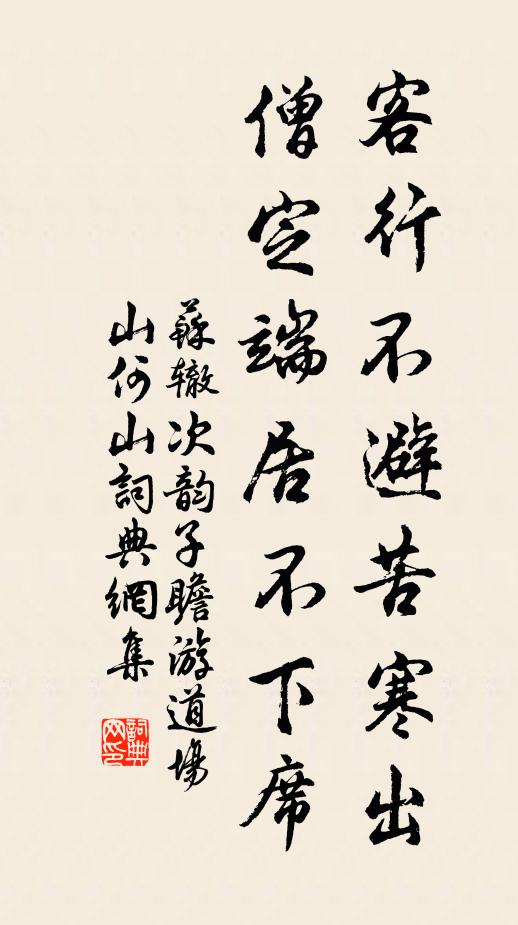 客行不避苦寒出
僧定端居不下席
蘇辙次韵子瞻游道場
山何山詞典網集
詞典网印